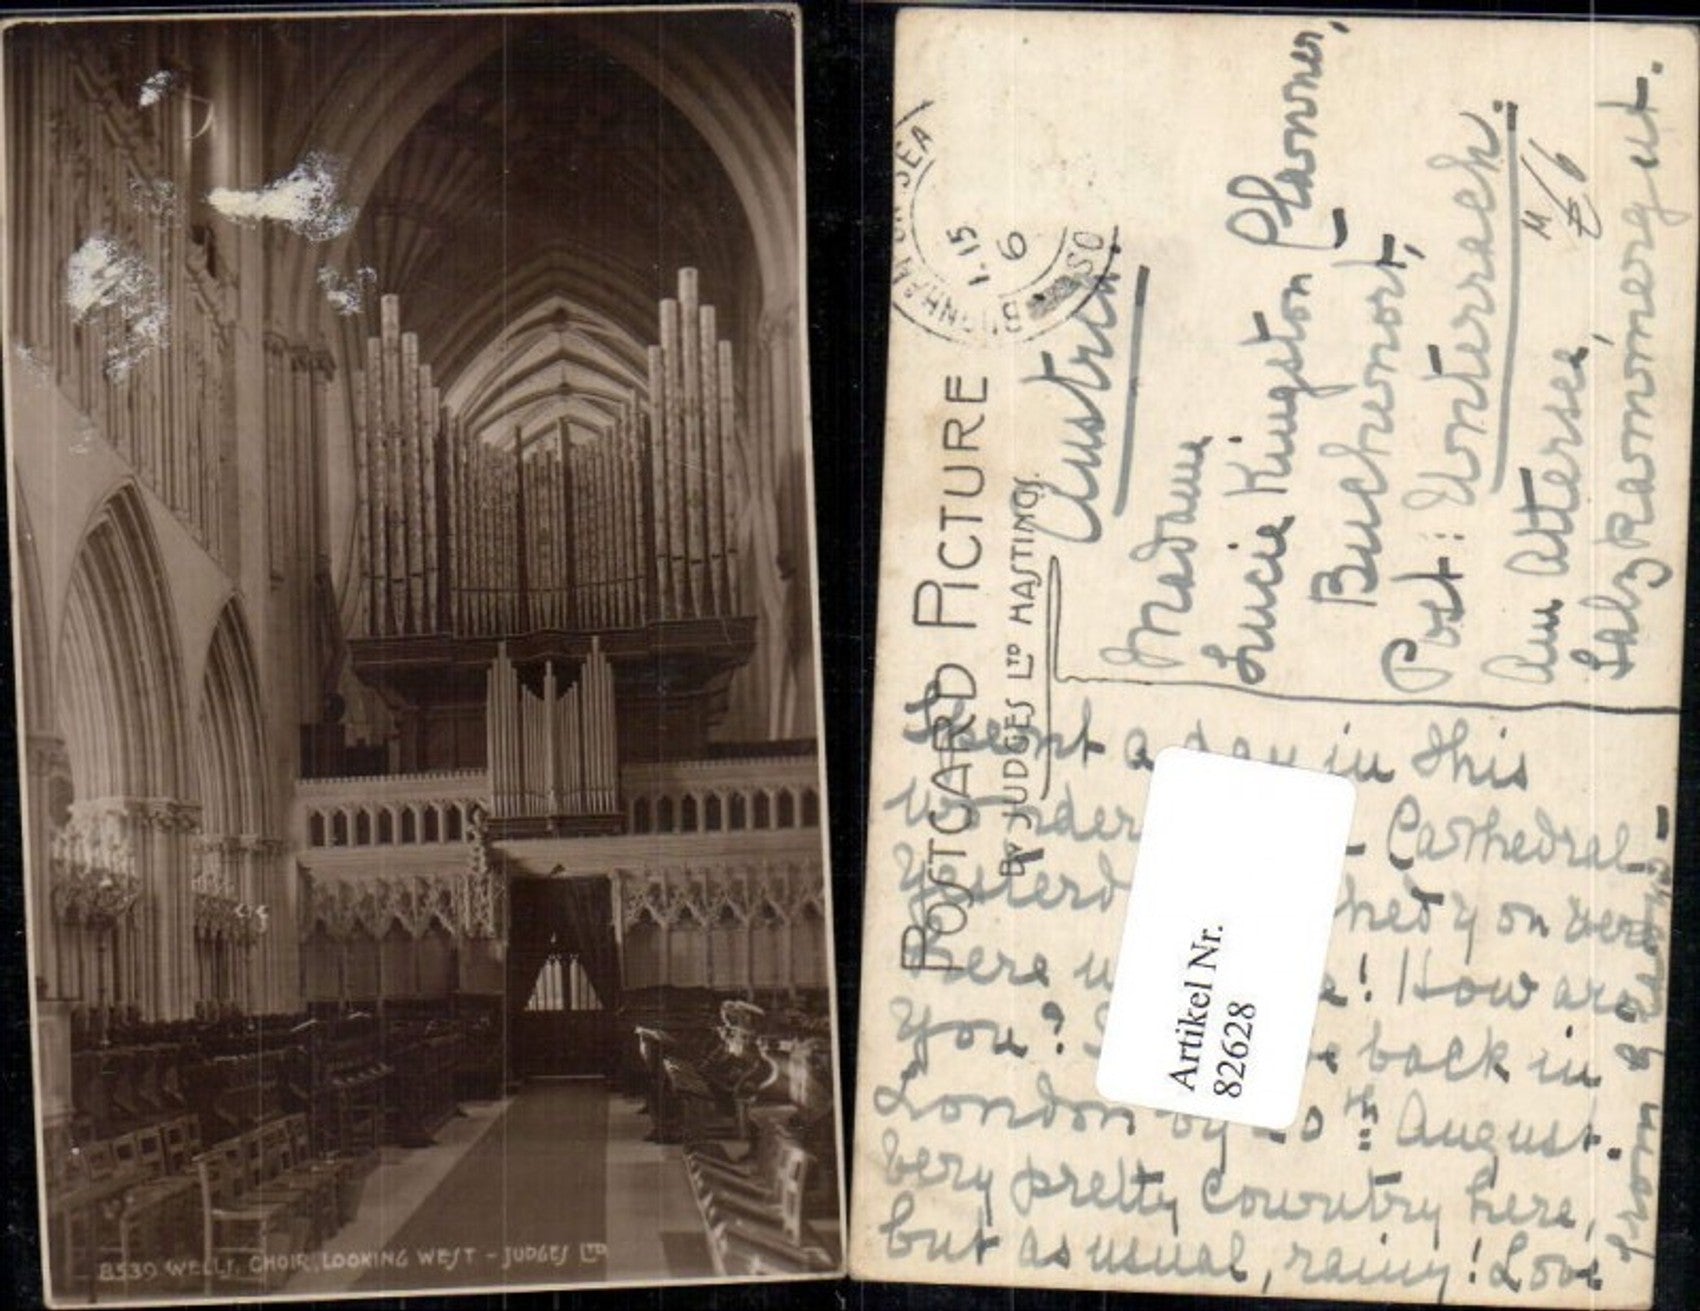 8539 WELLS, CHOIR, LOOKING WEST - JUDGES LTD
POSTCARD PICTURE
BY JUDGES LTD HASTINGS
BURNHAM ON SEA
SO
1.15
6
Austria.
Madame
Lucie Kingston
Buchenort,
Post: Unterrach.
Am Attersee,
Salzkammergut.
Spent a day in this
Cathedral -
you were
here ! How are
you? back in
London by th August.
Very pretty country here,
but as usual, rainy! Love
from
Artikel Nr.
82628